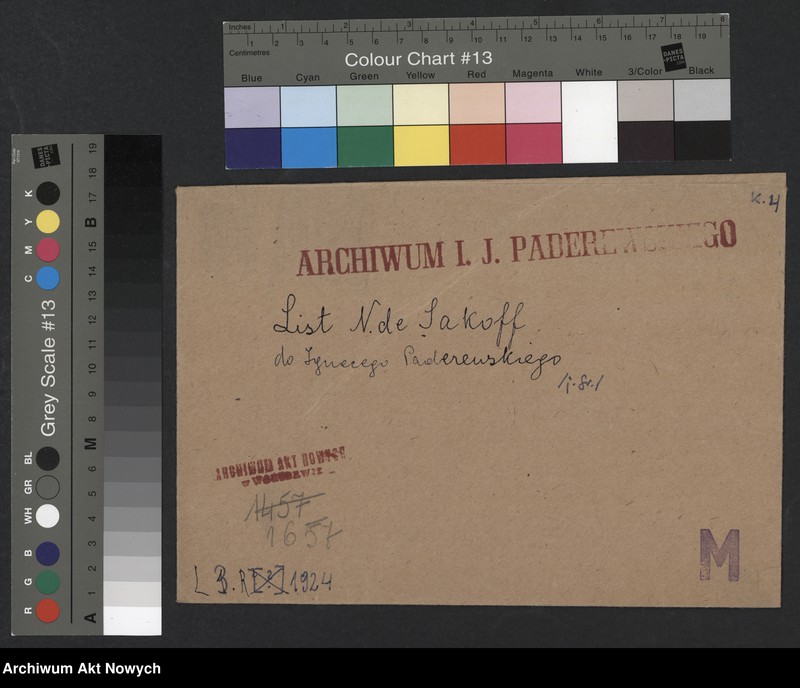 Inches 1 2 3 4 5 6 7 8
Centimetres 1 2 3 4 5 6 7 8 9 10 11 12 13 14 15 16 17 18 19
Colour Chart #13
DANES-PICTA
Blue Cyan Green Yellow Red Magenta White 3/Color Black
Grey Scale #13
DANES-PICTA
R G B WH GR BL C M Y K
A 1 2 3 4 5 6 M 8 9 10 11 12 13 14 15 B 17 18 19
K. 4
ARCHIWUM I. J. PADEREWSKIEGO
List N. de Sakoff
do Ignacego Paderewskiego
/j. fr./
ARCHIWUM AKT NOWYCH
w WARSZAWIE
1457
1657
L B. R 1924
M
Archiwum Akt Nowych